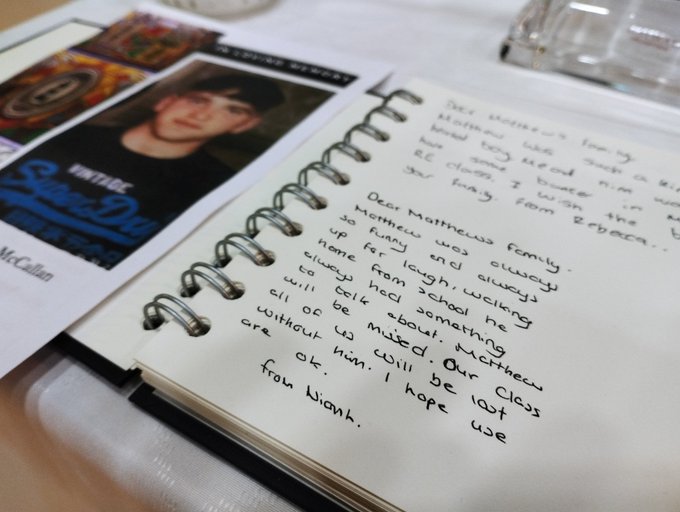 IN LOVING MEMORY
VINTAGE
SuperDry
McCallan
Dear Matthew's Family,
Matthew was such a
hearted boy. Me and him
have some banter in
RE class. I wish the
your family. From Rebecca..
Dear Matthews Family.
Matthew was always
so funny and always
up for laugh, walking
home from school he
always had something
to talk about. Matthew
will be missed. Our class
all of us will be lost
without him. I hope use
are ok.
from Niamh.